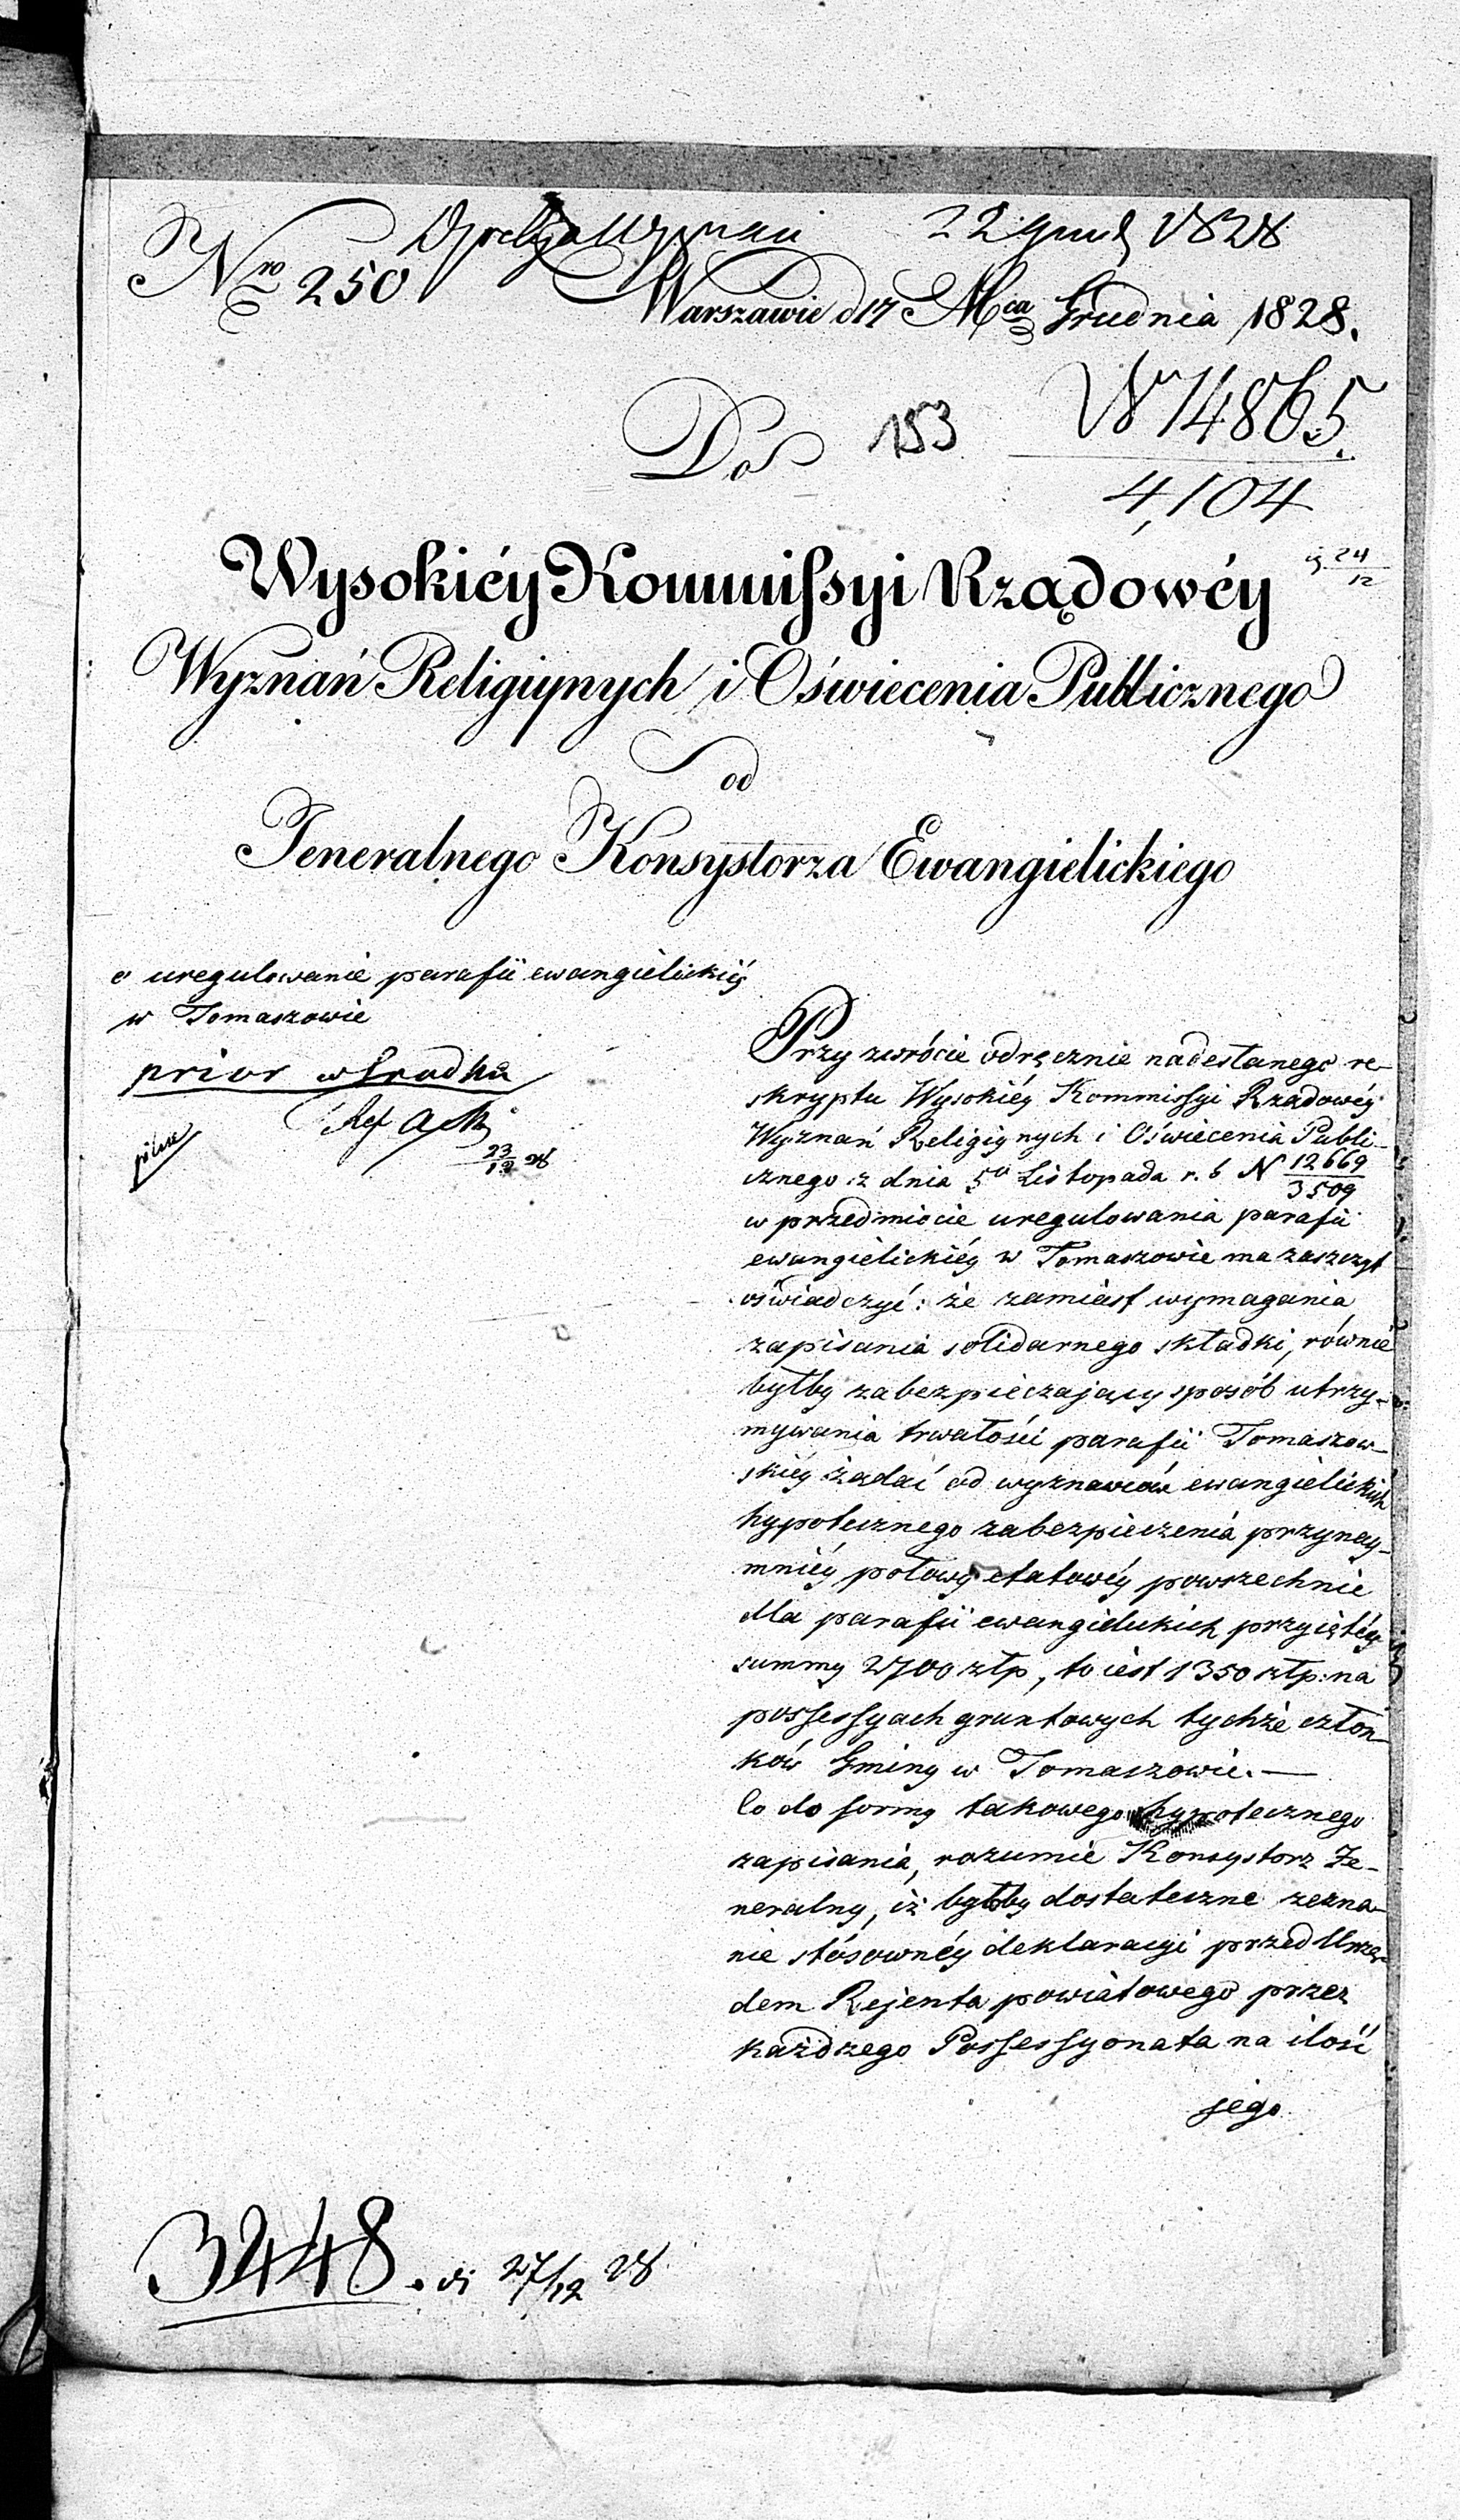 22 grud 1828
Nro 250
Warszawie d 17 Mca Grudnia 1828.
W 14865.
4,104
Do 153
24/12
Wysokiéy Kommissyi Rządowéy
Wyznań Religiynych i Oświecenia Publicznego
od
Jeneralnego Konsystorza Ewangielickiego
o uregulowanie parafii ewangielickiéy
w Tomaszowie
prior w środku
Ref
pilne
23/12 28
Przy zwrócie odręcznie nadesłanego re-
skryptu Wysokiéy Kommissyi Rządowéy
Wyznań Religiynych i Oświecenia Publi-
cznego z dnia 5o Listopada r. b N 12669/3509
w przedmiocie uregulowania parafii
ewangielickiéy w Tomaszowie ma zaszczyt
oświadczyć: że zamiast wymagania
zapisania solidarnego składki, równie
byłby zabezpieczający sposób utrzy-
mywania trwałości parafii Tomaszow-
skiéy żądać od wyznawców ewangielickich
hypotecznego zabezpieczenia przynay-
mniéy połowy etatowéy powszechnie
dla parafii ewangielickich przyiętéy
summy 2700 złp, to iest 1350 złp: na
possessyach gruntowych tychże człon-
ków Gminy w Tomaszowie. —
Co do formy takowego hypotecznego
zapisania, rozumie Konsystorz Je-
neralny, iż byłoby dostateczne zezna-
nie stósownéy deklaracyi przed Urzę-
dem Rejenta powiatowego przez
każdzego Possessyonata na ilość
jego
3448. 27/12 28